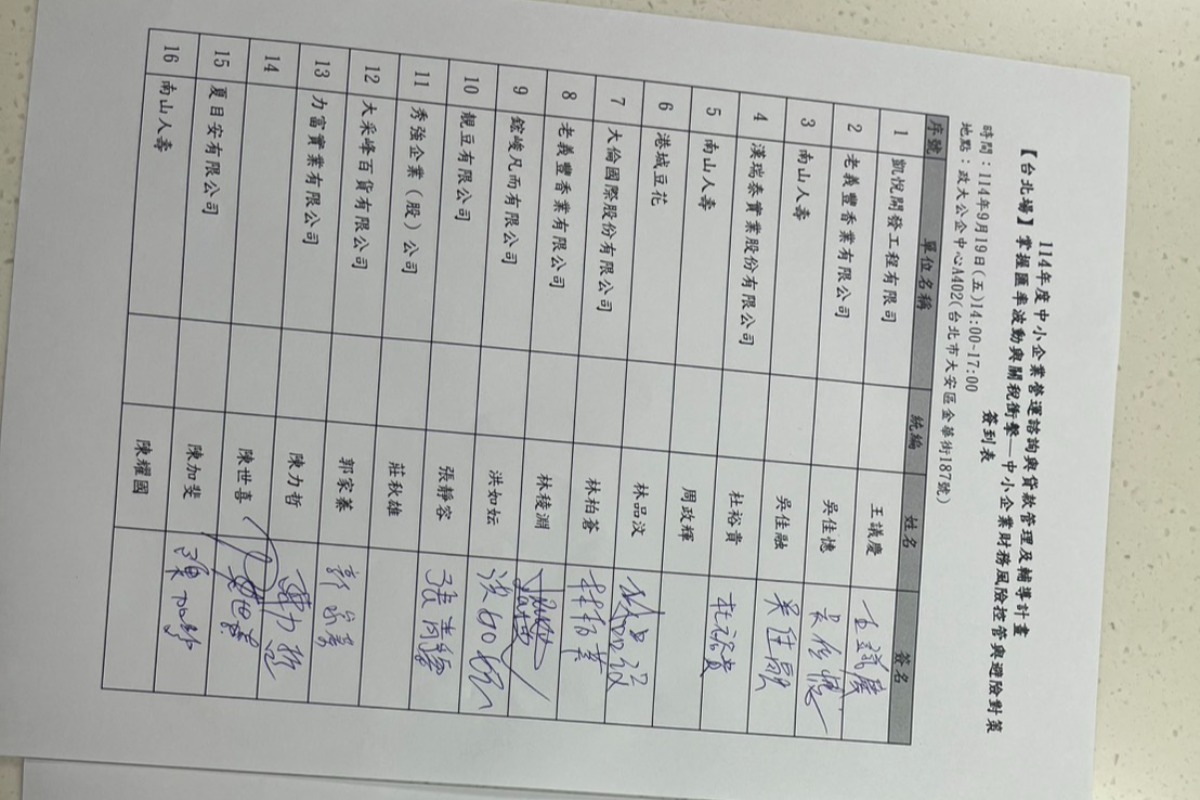 114年度中小企業營運諮詢與貸款管理及輔導計畫
【台北場】掌握匯率波動與關稅衝擊—中小企業財務風險控管與避險對策
簽到表
時間：114年9月19日(五)14:00-17:00
地點：政大公企中心A402(台北市大安區金華街187號)
序號 單位名稱 統編 姓名 簽名
1 凱悅開發工程有限司 王議慶 王議慶
2 老義豐香業有限公司 吳佳憓 吳佳憓
3 南山人壽 吳佳融 吳佳融
4 漢瑞泰實業股份有限公司 杜裕貴 杜裕貴
5 南山人壽 周政輝
6 港城豆花 林品汶 林品汶
7 大倫國際股份有限公司 林柏蒼 林柏蒼
8 老義豐香業有限公司 林稜淵
9 鋐峻凡而有限公司 洪如妘 洪如妘
10 靚豆有限公司 張靜容 張靜容
11 秀強企業(股)公司 莊秋雄
12 大采峰百貨有限公司 郭家蓁 郭家蓁
13 力富實業有限公司 陳力哲 陳力哲
14 陳世喜 陳世喜
15 夏目安有限公司 陳加斐 陳加斐
16 南山人壽 陳耀國